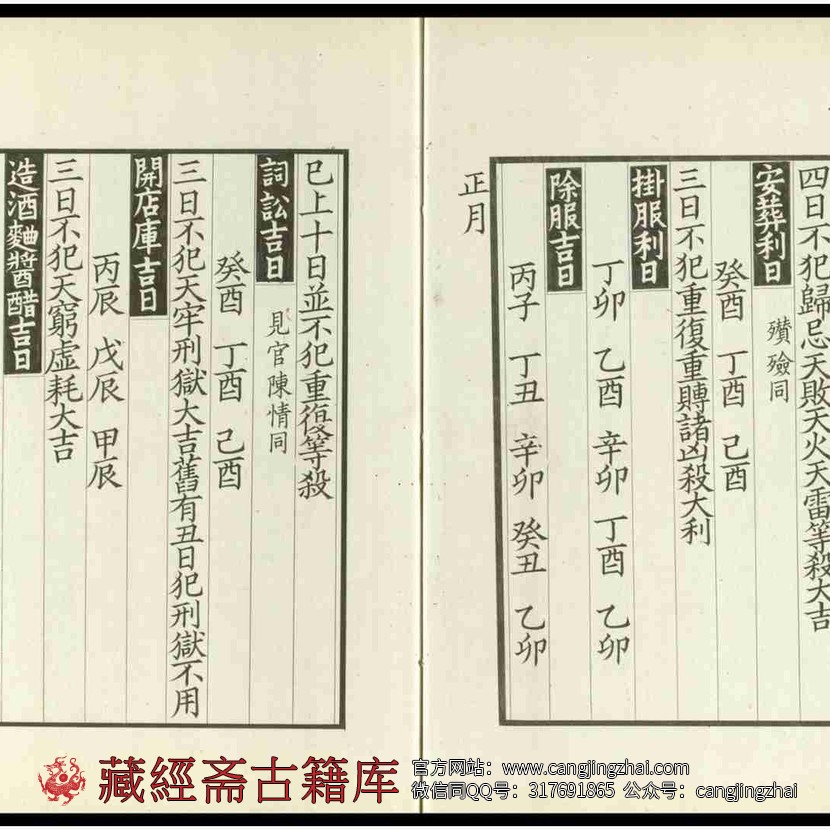 四日不犯歸忌天敗天火天雷等殺大吉
安葬利日 殯殮同
癸酉 丁酉 己酉
三日不犯重復重賻諸凶殺大利
掛服利日
丁卯 乙酉 辛卯 丁酉 乙卯
除服吉日
丙子 丁丑 辛卯 癸丑 乙卯
正月
已上十日並不犯重復等殺
詞訟吉日 見官陳情同
癸酉 丁酉 己酉
三日不犯天牢刑獄大吉舊有丑日犯刑獄不用
開店庫吉日
丙辰 戊辰 甲辰
三日不犯天窮虛耗大吉
造酒麯醬醋吉日
藏經斋古籍库
官方网站：www.cangjingzhai.com
微信同QQ号：317691865 公众号：cangjingzhai